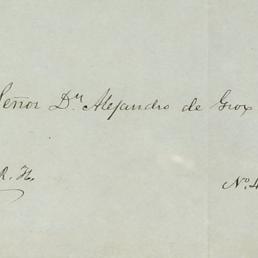 Señor Dn Alejandro de Grox
R. H. No. 4